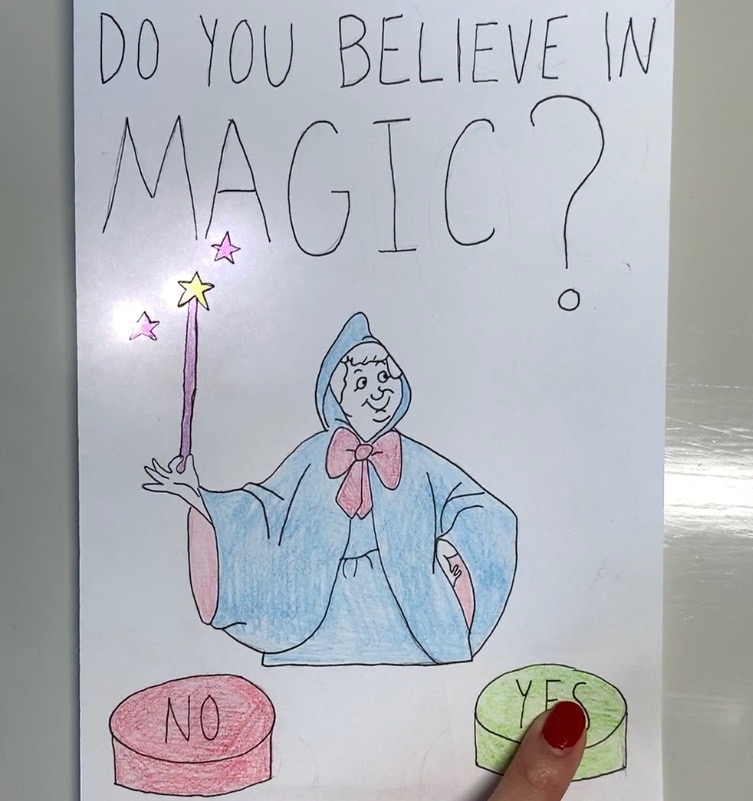 DO YOU BELIEVE IN
MAGIC?
NO
YES